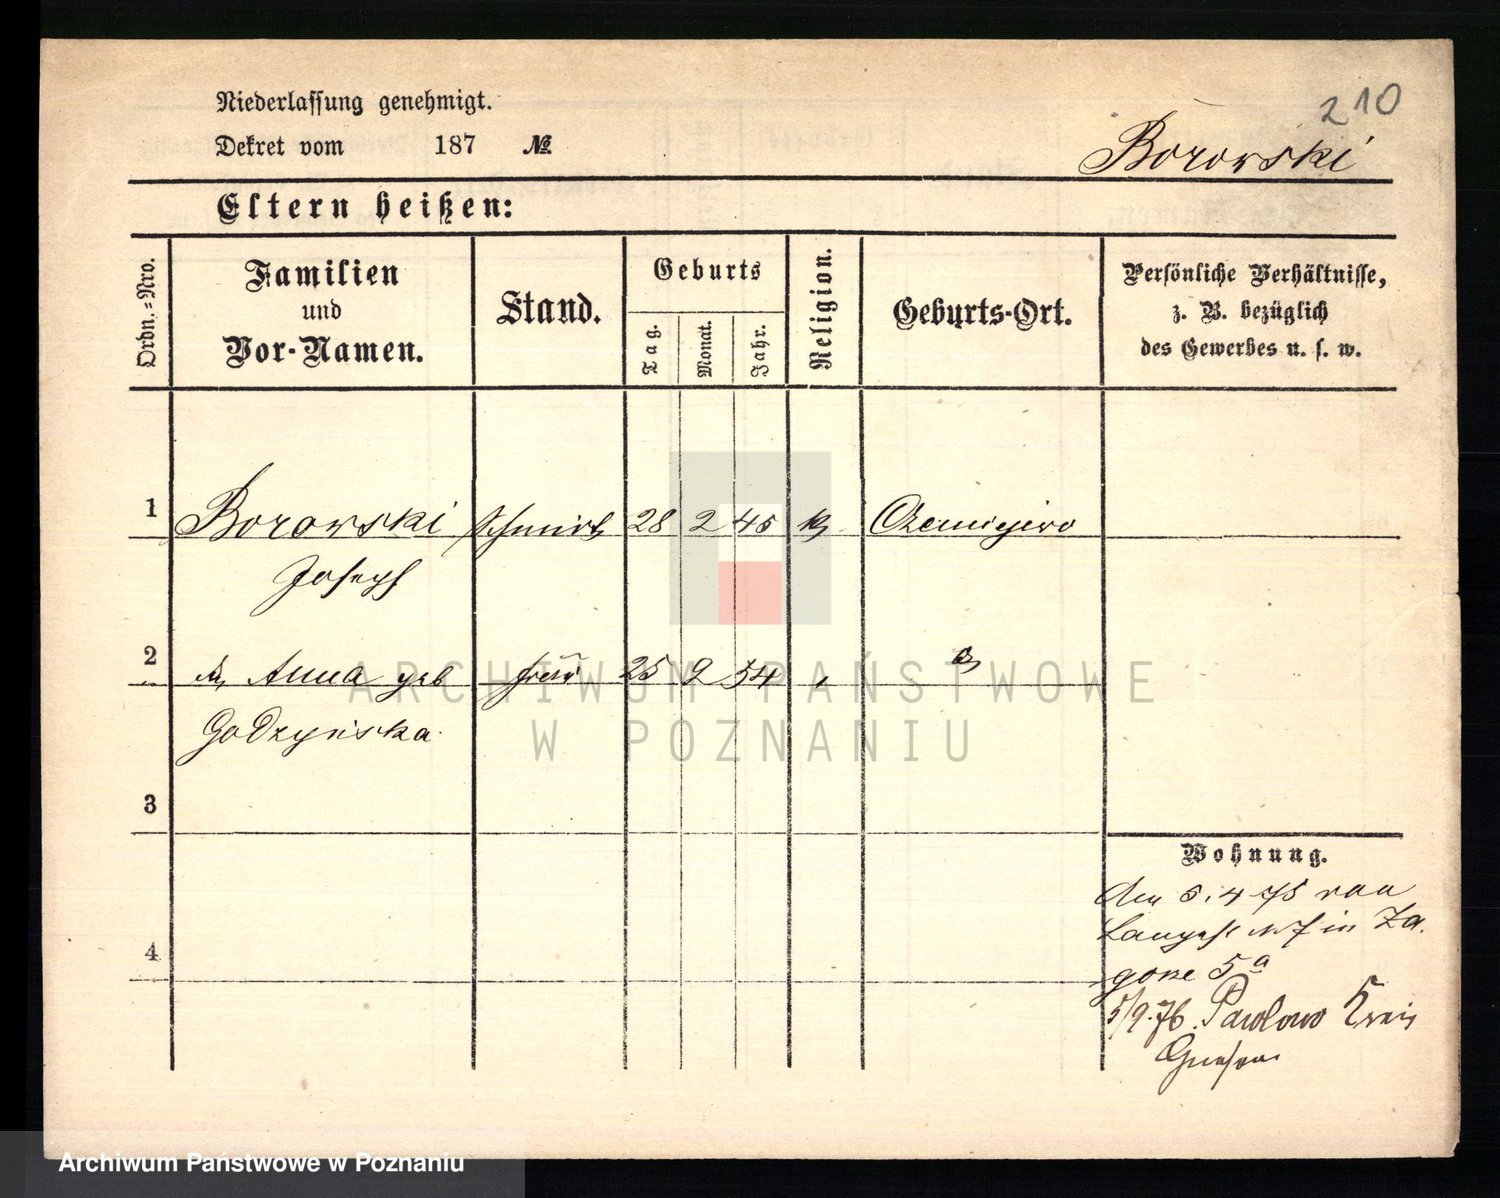 Niederlassung genehmigt.
210
Dekret vom 187 №
Borowski
Eltern heißen:
Ordn.-Nro.
Familien
und
Vor-Namen.
Stand.
Geburts
Tag.
Monat.
Jahr.
Religion.
Geburts-Ort.
Persönliche Verhältnisse,
z. B. bezüglich
des Gewerbes u. s. w.
1 Borowski Schmidt 28 2 45 k
Joseph
2 Anna geb Frau 25 9 54
Godzyńska
ARCHIWUM PAŃSTWOWE
W POZNANIU
3
4
Wohnung.
5.4 75 von
Langest № 7 in Za.
gorze 5a
5/9.76. Pawlowo Kreis
Gnesen
Archiwum Państwowe w Poznaniu